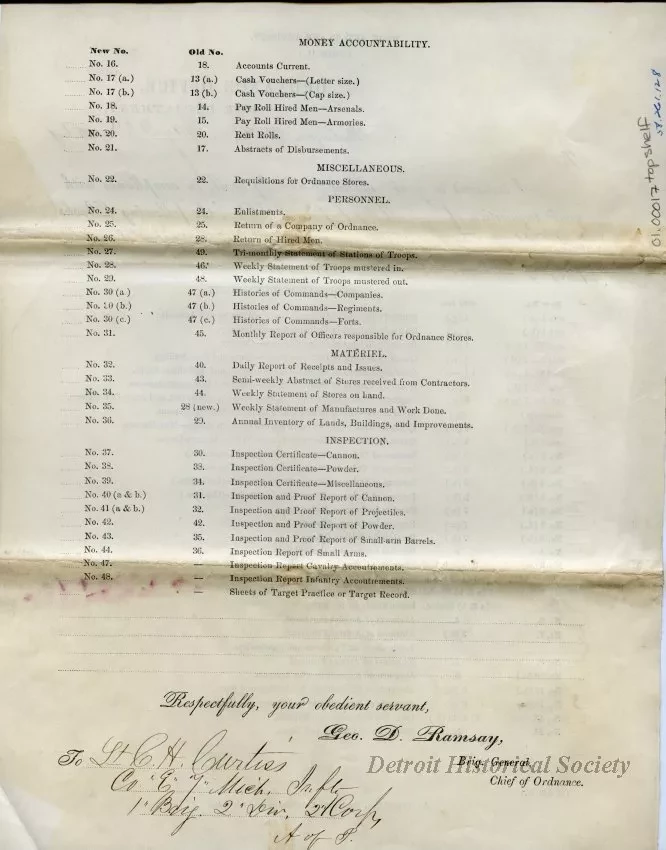 MONEY ACCOUNTABILITY.
New No. Old No.
No. 16. 18. Accounts Current.
No. 17 (a.) 13 (a.) Cash Vouchers—(Letter size.)
No. 17 (b.) 13 (b.) Cash Vouchers—(Cap size.)
No. 18. 14. Pay Roll Hired Men—Arsenals.
No. 19. 15. Pay Roll Hired Men—Armories.
No. 20. 20. Rent Rolls.
No. 21. 17. Abstracts of Disbursements.
MISCELLANEOUS.
No. 22. 22. Requisitions for Ordnance Stores.
PERSONNEL.
No. 24. 24. Enlistments.
No. 25. 25. Return of a Company of Ordnance.
No. 26. 28. Return of Hired Men.
No. 27. 49. Tri-monthly Statement of Stations of Troops.
No. 28. 46. Weekly Statement of Troops mustered in.
No. 29. 48. Weekly Statement of Troops mustered out.
No. 30 (a) 47 (a.) Histories of Commands—Companies.
No. 30 (b.) 47 (b.) Histories of Commands—Regiments.
No. 30 (c.) 47 (c.) Histories of Commands—Forts.
No. 31. 45. Monthly Report of Officers responsible for Ordnance Stores.
MATÉRIEL.
No. 32. 40. Daily Report of Receipts and Issues.
No. 33. 43. Semi-weekly Abstract of Stores received from Contractors.
No. 34. 44. Weekly Statement of Stores on hand.
No. 35. 28 (new.) Weekly Statement of Manufactures and Work Done.
No. 36. 29. Annual Inventory of Lands, Buildings, and Improvements.
INSPECTION.
No. 37. 30. Inspection Certificate—Cannon.
No. 38. 33. Inspection Certificate—Powder.
No. 39. 34. Inspection Certificate—Miscellaneous.
No. 40 (a & b.) 31. Inspection and Proof Report of Cannon.
No. 41 (a & b.) 32. Inspection and Proof Report of Projectiles.
No. 42. 42. Inspection and Proof Report of Powder.
No. 43. 35. Inspection and Proof Report of Small-arm Barrels.
No. 44. 36. Inspection Report of Small Arms.
No. 47. — Inspection Report Cavalry Accoutrements.
No. 48. — Inspection Report Infantry Accoutrements.
— Sheets of Target Practice or Target Record.
Respectfully, your obedient servant,
Geo. D. Ramsay,
Brig. General,
Chief of Ordnance.
To Lt C. H. Curtiss
Co "E" 7" Mich. Infty
1" Brig. 2" Div. 2" Corp,
A of P.
Detroit Historical Society